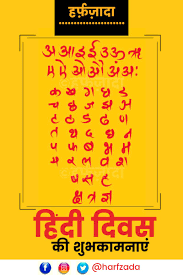 हर्फ़ज़ादा
अ आ इ ई उ ऊ ऋ
ए ऐ ओ औ अं अः
क ख ग घ ङ
च छ ज झ ञ
ट ठ ड ढ ण
त थ द ध न
प फ ब भ म
य र ल व श
ष स ह
क्ष त्र ज्ञ
हिंदी दिवस
की शुभकामनाएं
@harfzada